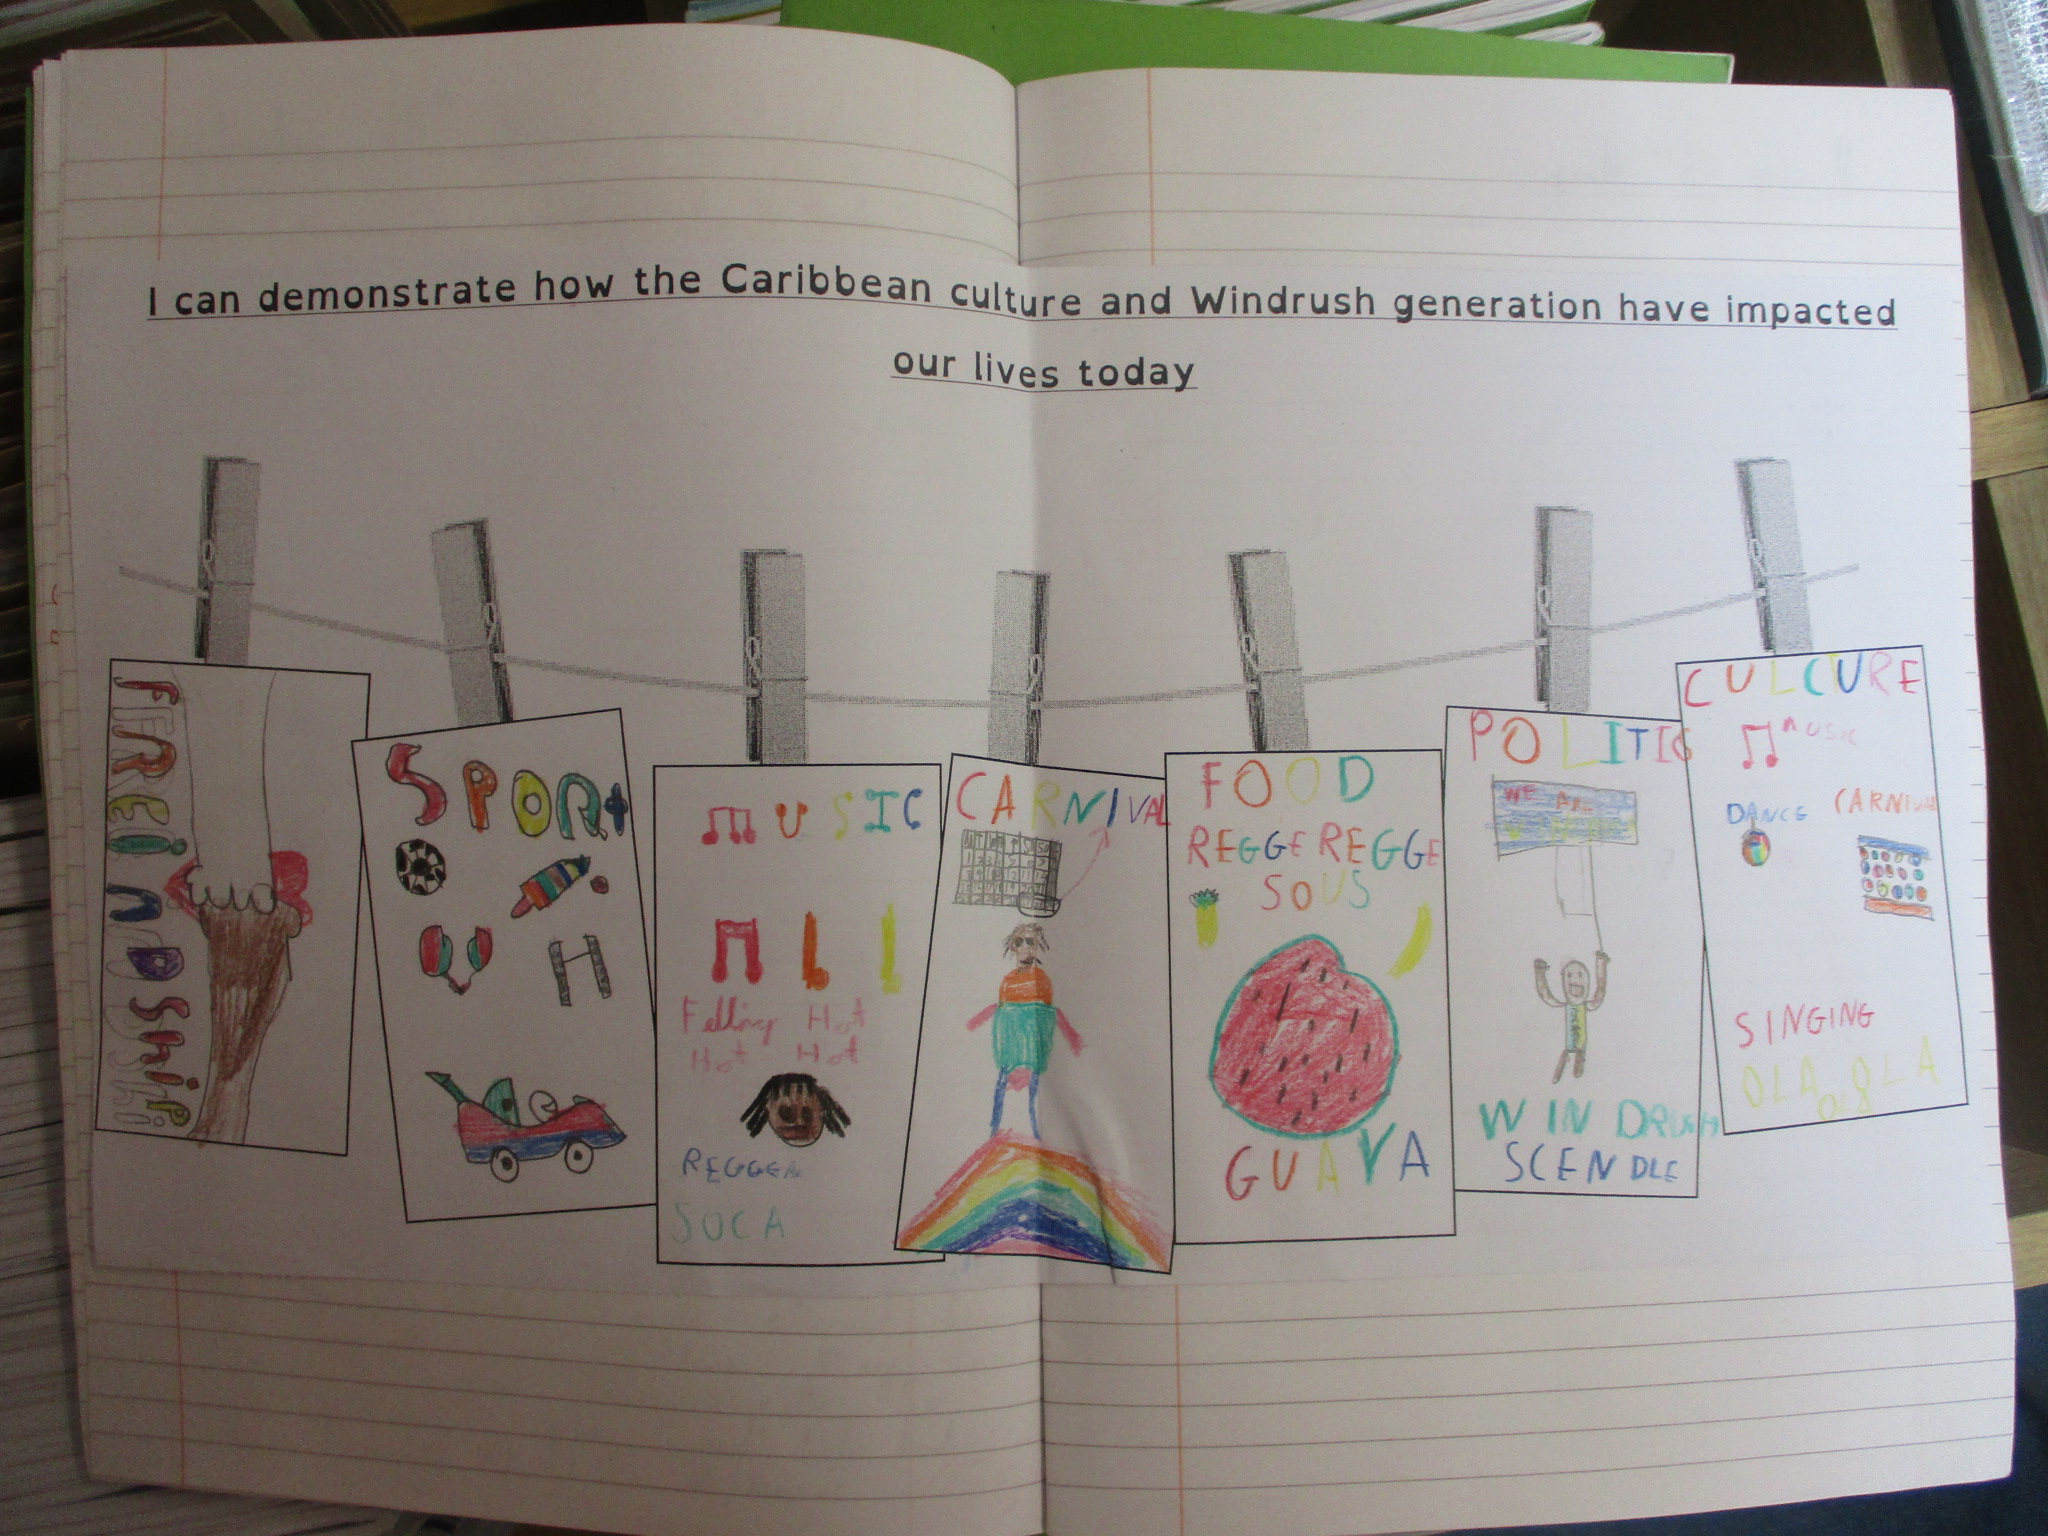 I can demonstrate how the Caribbean culture and Windrush generation have impacted
our lives today
FREINDShip
SPORt
MUSIC
Felling Hot
Hot Hot
REGGEA
SOCA
CARNIVAL
FOOD
REGGE REGGE
SOUS
GUAVA
POLITICS
WE ARE
WINDRUSH
SCENDLE
CULCURE
MUSIC
DANCE
CARNIVAL
SINGING
OLA OLA OLA